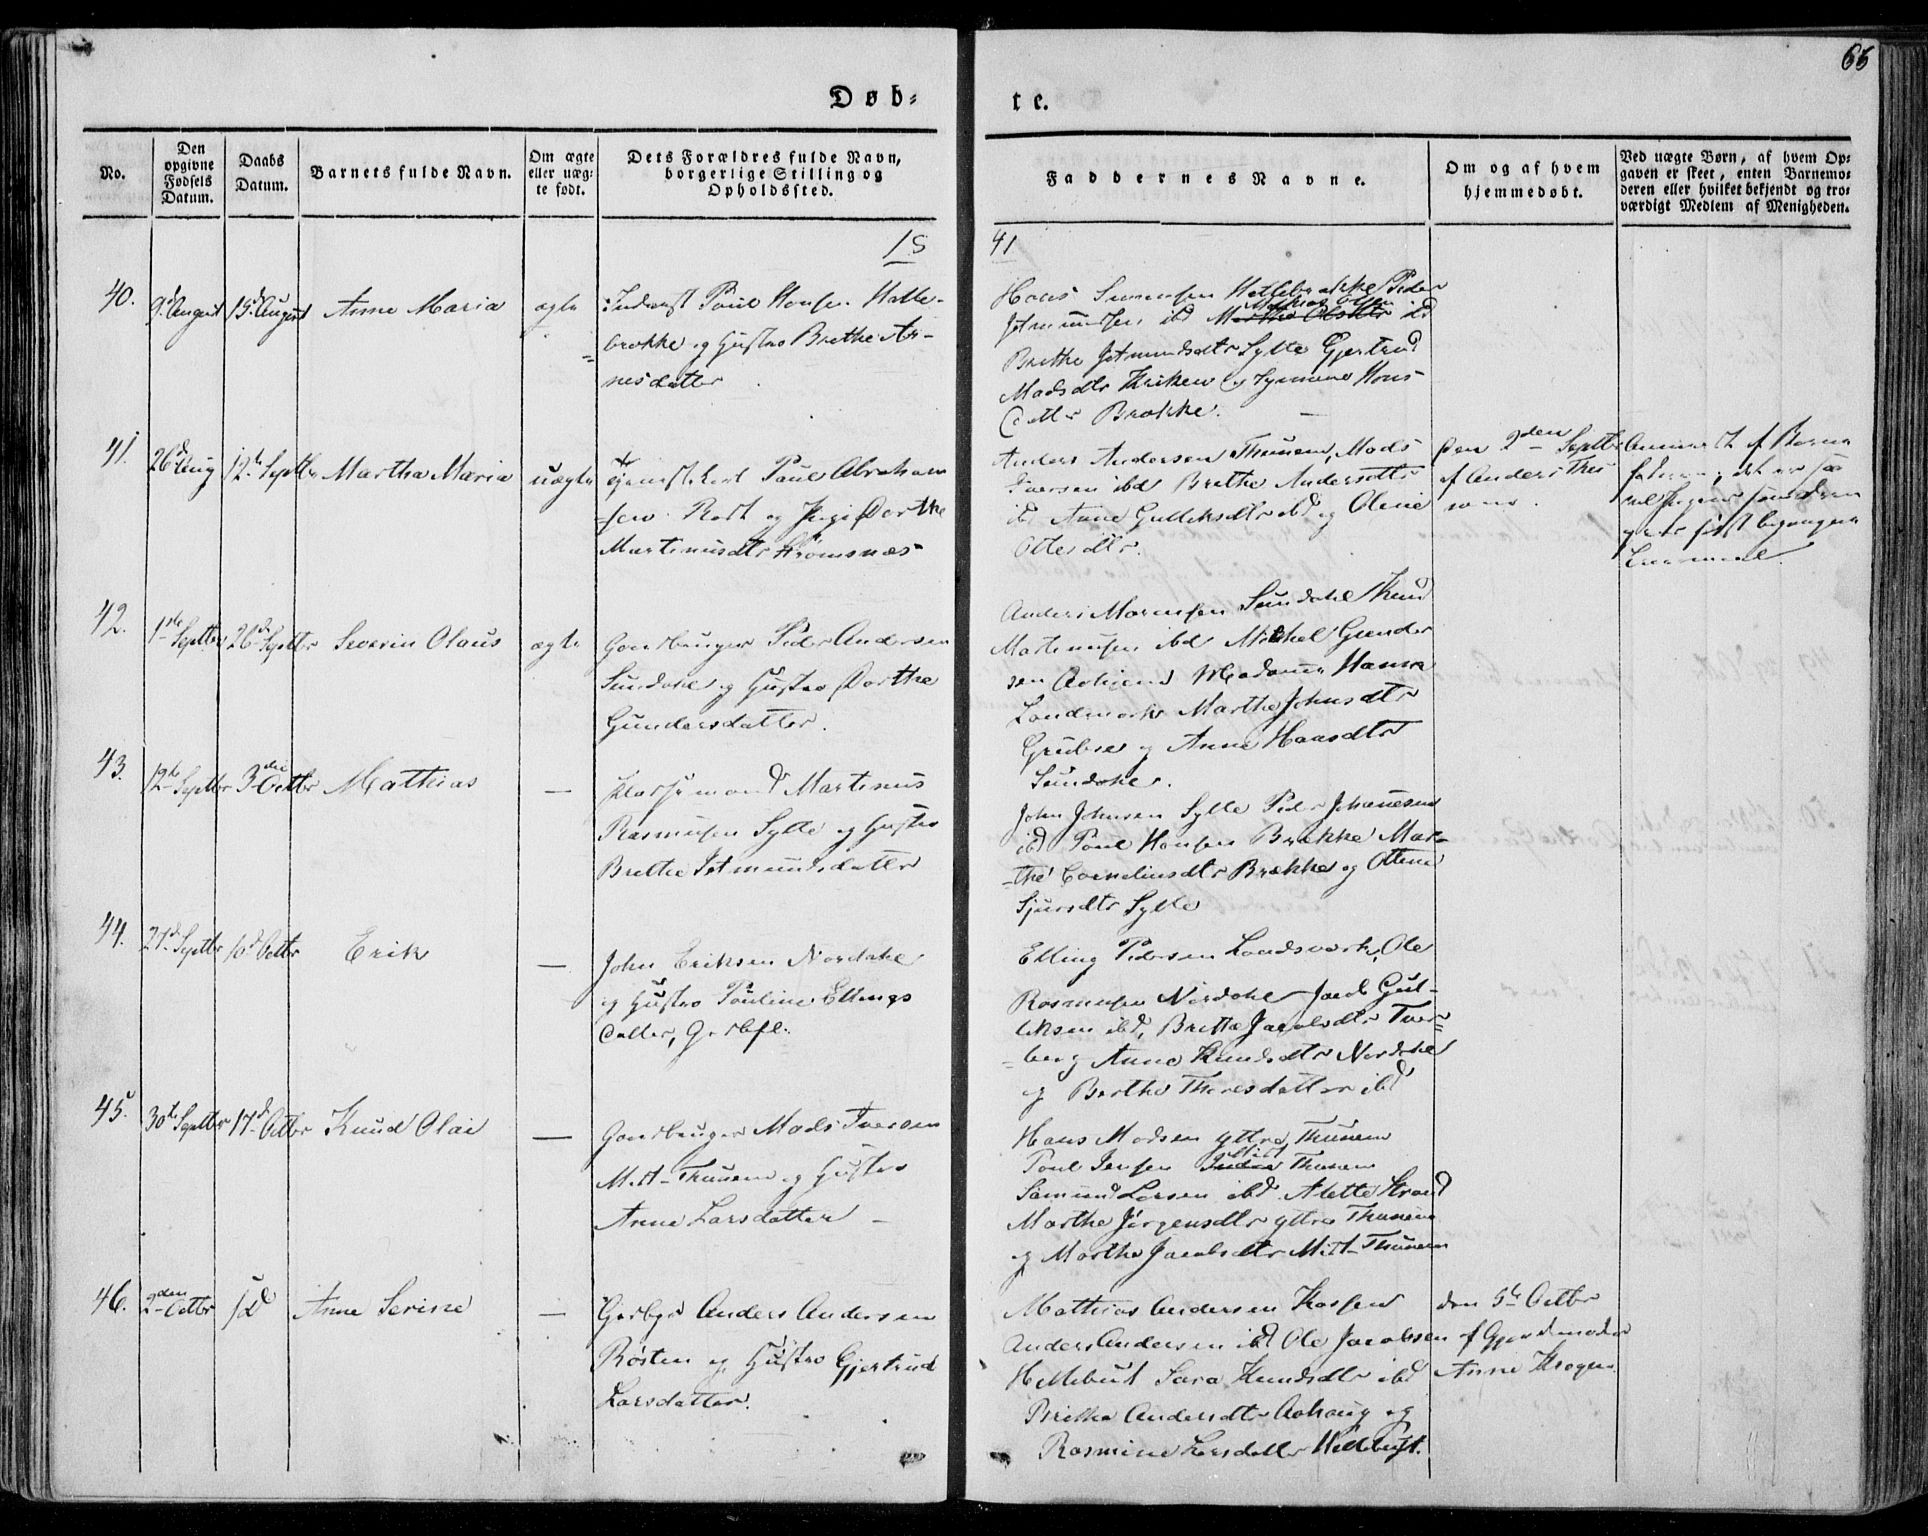 66
Døb-
te.
No.
Den opgivne Fødsels Datum.
Daabs Datum.
Barnets fulde Navn.
Om ægte eller uæg-te født.
Dets Forældres fulde Navn, borgerlige Stilling og Opholdssted.
Faddernes Navne.
Om og af hvem hjemmedøbt.
Ved uægte Børn, af hvem Op-gaven er skeet, enten Barnemo-deren eller hvilket bekjendt og tro-værdigt Medlem af Menigheden.
18
41
40. 9d August 15d August Anne Maria ægte
Inderst Poul Hansen Halle-
brække og Hustro Brethe Ar-
nesdatter
Hans Hellebrække Peder
ibd Mathias Olsen ibd
Brethe Jetmundsdtr Sylte Gjertrud
Madsdtr Kriken og Hans
datter Brække.
41. 26d Aug 12te Septbr Martha Maria uægte
Tjenestekarl Paul Abraham
sen Rød og Pige Dorthe
Martinusdtr Strømsnæs
Anders Andersen Thunem, Mads
Iversen ibd Brethe Andersdtr
ibd Anne Gulliksdtr ibd og Oline
Ottesdtr.
den 2den Septbr
af Anders Thu
nem.
Anmeldt af Barne
faderen, det er saa
vel som
første begangen
Leiermaal.
42. 1ste Septbr 26d Septbr Severin Olaus ægte
Gaardbruger Peder Andersen
Sundahl og Hustro Dorthe
Gundersdatter.
Anders Sundahl Knud
Martinusen ibd Mikkel Gunder
sen Madame Hanna
Landmark Marthe Johnsdtr
og Anne Hansdtr
Sundahl.
43. 12te Septbr 3die Octbr Mathias —
Martinus
Rasmusen Sylte og Hustro
Brethe Jetmundsdatter
John Johnsen Sylte Peder Johannesen
ibd Poul Hansen Brække Mar-
the Corneliusdtr Brække og Oline
Sjursdtr Sylte
44. 21d Septbr 10d Octbr Erik —
John Eriksen Nordahl
og Hustro Pauline Ellings
datter,
Elling Pedersen Landsværk, Ole
Rasmusen Nordahl Jacob Gul-
liksen ibd, Brethe Jacobsdtr Tver-
berg Anne Knudsdtr Nordahl
og Berthe Thoresdatter ibd
45. 30te Septbr 17d Octbr Knud Olai —
Gaardbruger Mads Iversen
Mit-Thunem og Hustro
Anne Larsdatter —
Hans Madsen yttre Thunem
Poul Jensen Thunem
Samund Larsen ibd Alette Strand
Marthe Jørgensdtr yttre Thunem
og Marthe Jacobsdtr Mitt-Thunem
46. 2den Octbr Anne Serine —
Anders Andersen
Røsten og Hustro Gjertrud
Larsdatter.
Mathias Andersen
Anders Andersen ibd Ole Jacobsen
Hellebust Sara Knudsdtr ibd
Brethe Andersdtr og
Rasmine Larsdatter Hellebust.
den 5te Octbr
af Gjordemoder
Anne Krogen